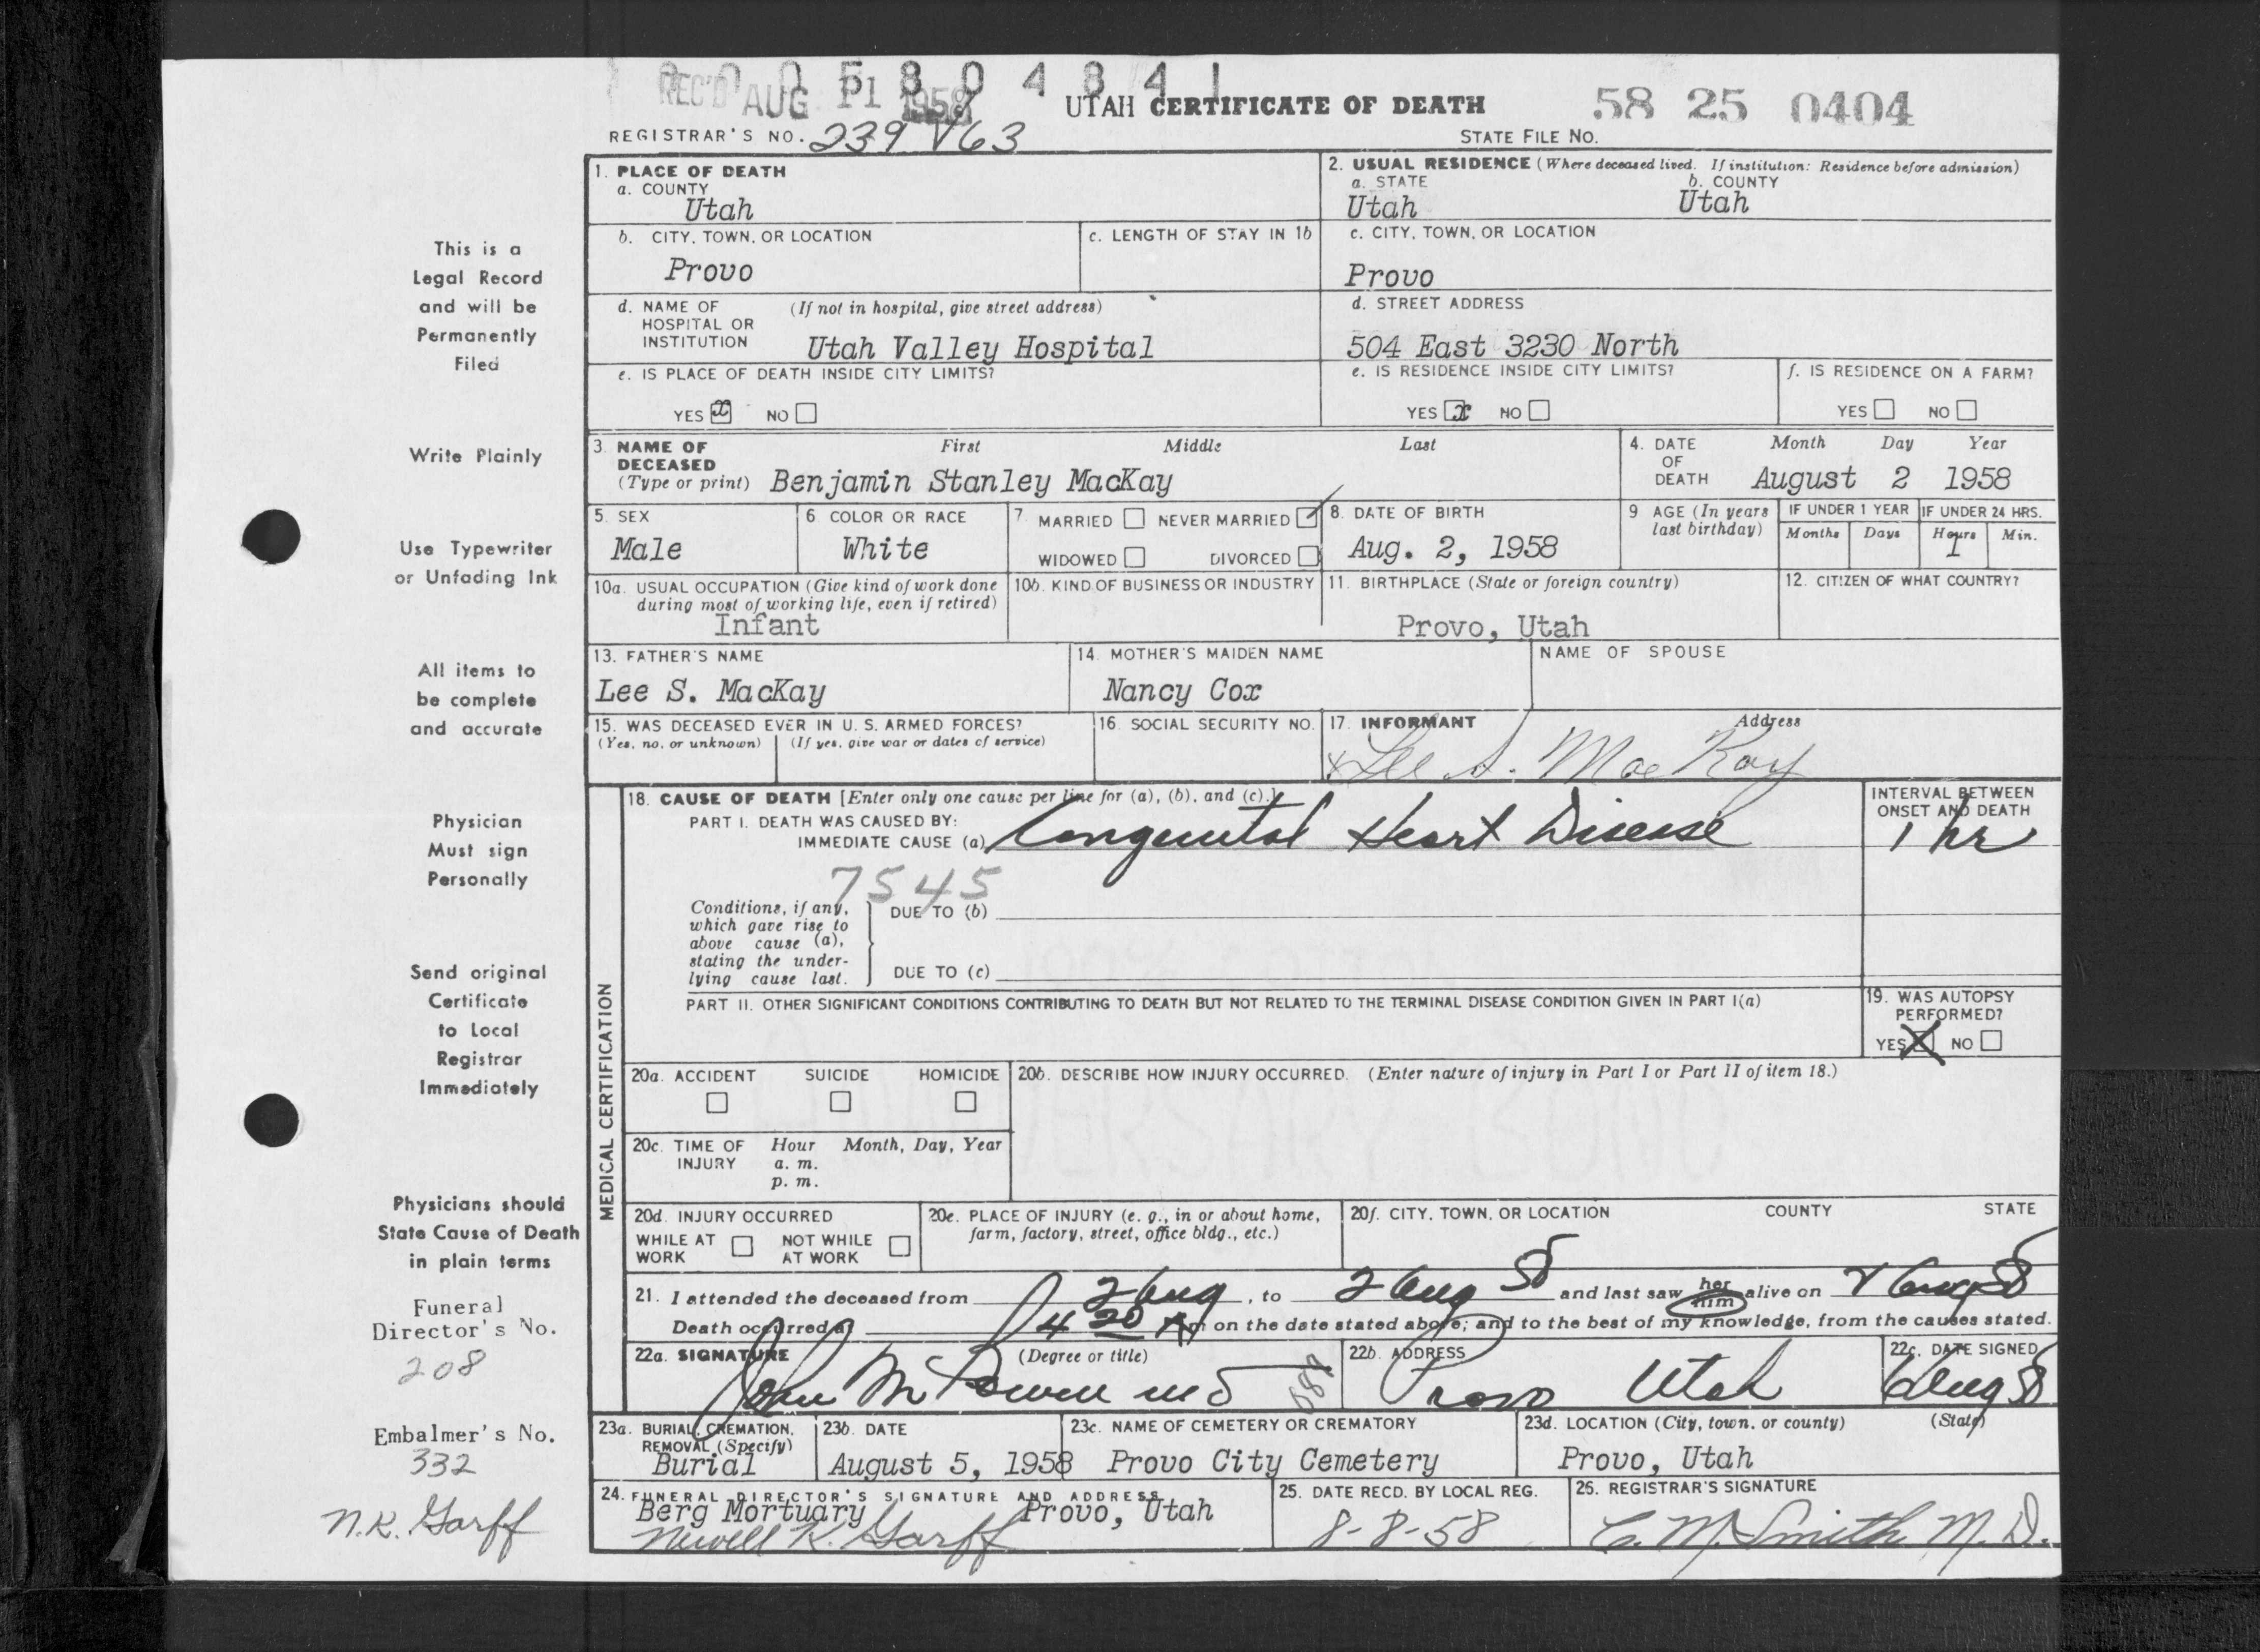 2005804841
REC'D AUG 11 1958
UTAH CERTIFICATE OF DEATH
58 25 0404
REGISTRAR'S NO. 239 V63
STATE FILE NO.
1. PLACE OF DEATH
a. COUNTY
Utah
2. USUAL RESIDENCE (Where deceased lived. If institution: Residence before admission)
a. STATE b. COUNTY
Utah Utah
b. CITY, TOWN, OR LOCATION
Provo
c. LENGTH OF STAY IN 1b
c. CITY, TOWN, OR LOCATION
Provo
d. NAME OF HOSPITAL OR INSTITUTION (If not in hospital, give street address)
Utah Valley Hospital
d. STREET ADDRESS
504 East 3230 North
e. IS PLACE OF DEATH INSIDE CITY LIMITS?
YES x NO
e. IS RESIDENCE INSIDE CITY LIMITS?
YES x NO
f. IS RESIDENCE ON A FARM?
YES NO
3. NAME OF DECEASED (Type or print) First Middle Last
Benjamin Stanley MacKay
4. DATE OF DEATH Month Day Year
August 2 1958
5. SEX
Male
6. COLOR OR RACE
White
7. MARRIED NEVER MARRIED
WIDOWED DIVORCED
8. DATE OF BIRTH
Aug. 2, 1958
9. AGE (In years last birthday)
IF UNDER 1 YEAR IF UNDER 24 HRS.
Months Days Hours Min.
1
10a. USUAL OCCUPATION (Give kind of work done during most of working life, even if retired)
Infant
10b. KIND OF BUSINESS OR INDUSTRY
11. BIRTHPLACE (State or foreign country)
Provo, Utah
12. CITIZEN OF WHAT COUNTRY?
13. FATHER'S NAME
Lee S. MacKay
14. MOTHER'S MAIDEN NAME
Nancy Cox
NAME OF SPOUSE
15. WAS DECEASED EVER IN U. S. ARMED FORCES?
(Yes, no, or unknown) (If yes, give war or dates of service)
16. SOCIAL SECURITY NO.
17. INFORMANT Address
x Lee S. MacKay
MEDICAL CERTIFICATION
18. CAUSE OF DEATH [Enter only one cause per line for (a), (b), and (c).]
PART I. DEATH WAS CAUSED BY:
IMMEDIATE CAUSE (a) Congenital Heart Disease
INTERVAL BETWEEN ONSET AND DEATH
1 hr
7545
Conditions, if any, which gave rise to above cause (a), stating the underlying cause last.
DUE TO (b)
DUE TO (c)
PART II. OTHER SIGNIFICANT CONDITIONS CONTRIBUTING TO DEATH BUT NOT RELATED TO THE TERMINAL DISEASE CONDITION GIVEN IN PART I(a)
19. WAS AUTOPSY PERFORMED?
YES X NO
20a. ACCIDENT SUICIDE HOMICIDE
20b. DESCRIBE HOW INJURY OCCURRED. (Enter nature of injury in Part I or Part II of item 18.)
20c. TIME OF INJURY Hour Month, Day, Year
a. m.
p. m.
20d. INJURY OCCURRED
WHILE AT WORK NOT WHILE AT WORK
20e. PLACE OF INJURY (e. g., in or about home, farm, factory, street, office bldg., etc.)
20f. CITY, TOWN, OR LOCATION COUNTY STATE
21. I attended the deceased from 2 Aug, to 2 Aug 58 and last saw her him alive on 2 Aug 58
Death occurred at 4 20 A m on the date stated above; and to the best of my knowledge, from the causes stated.
22a. SIGNATURE (Degree or title)
22b. ADDRESS
Provo Utah
22c. DATE SIGNED
6 Aug 58
23a. BURIAL, CREMATION, REMOVAL (Specify)
Burial
23b. DATE
August 5, 1958
23c. NAME OF CEMETERY OR CREMATORY
Provo City Cemetery
23d. LOCATION (City, town, or county) (State)
Provo, Utah
24. FUNERAL DIRECTOR'S SIGNATURE AND ADDRESS
Berg Mortuary Provo, Utah
Newell K. Garff
25. DATE RECD. BY LOCAL REG.
8-8-58
26. REGISTRAR'S SIGNATURE
C. M. Smith M. D.
This is a
Legal Record
and will be
Permanently
Filed
Write Plainly
Use Typewriter
or Unfading Ink
All items to
be complete
and accurate
Physician
Must sign
Personally
Send original
Certificate
to Local
Registrar
Immediately
Physicians should
State Cause of Death
in plain terms
Funeral
Director's No.
208
Embalmer's No.
332
N.K. Garff